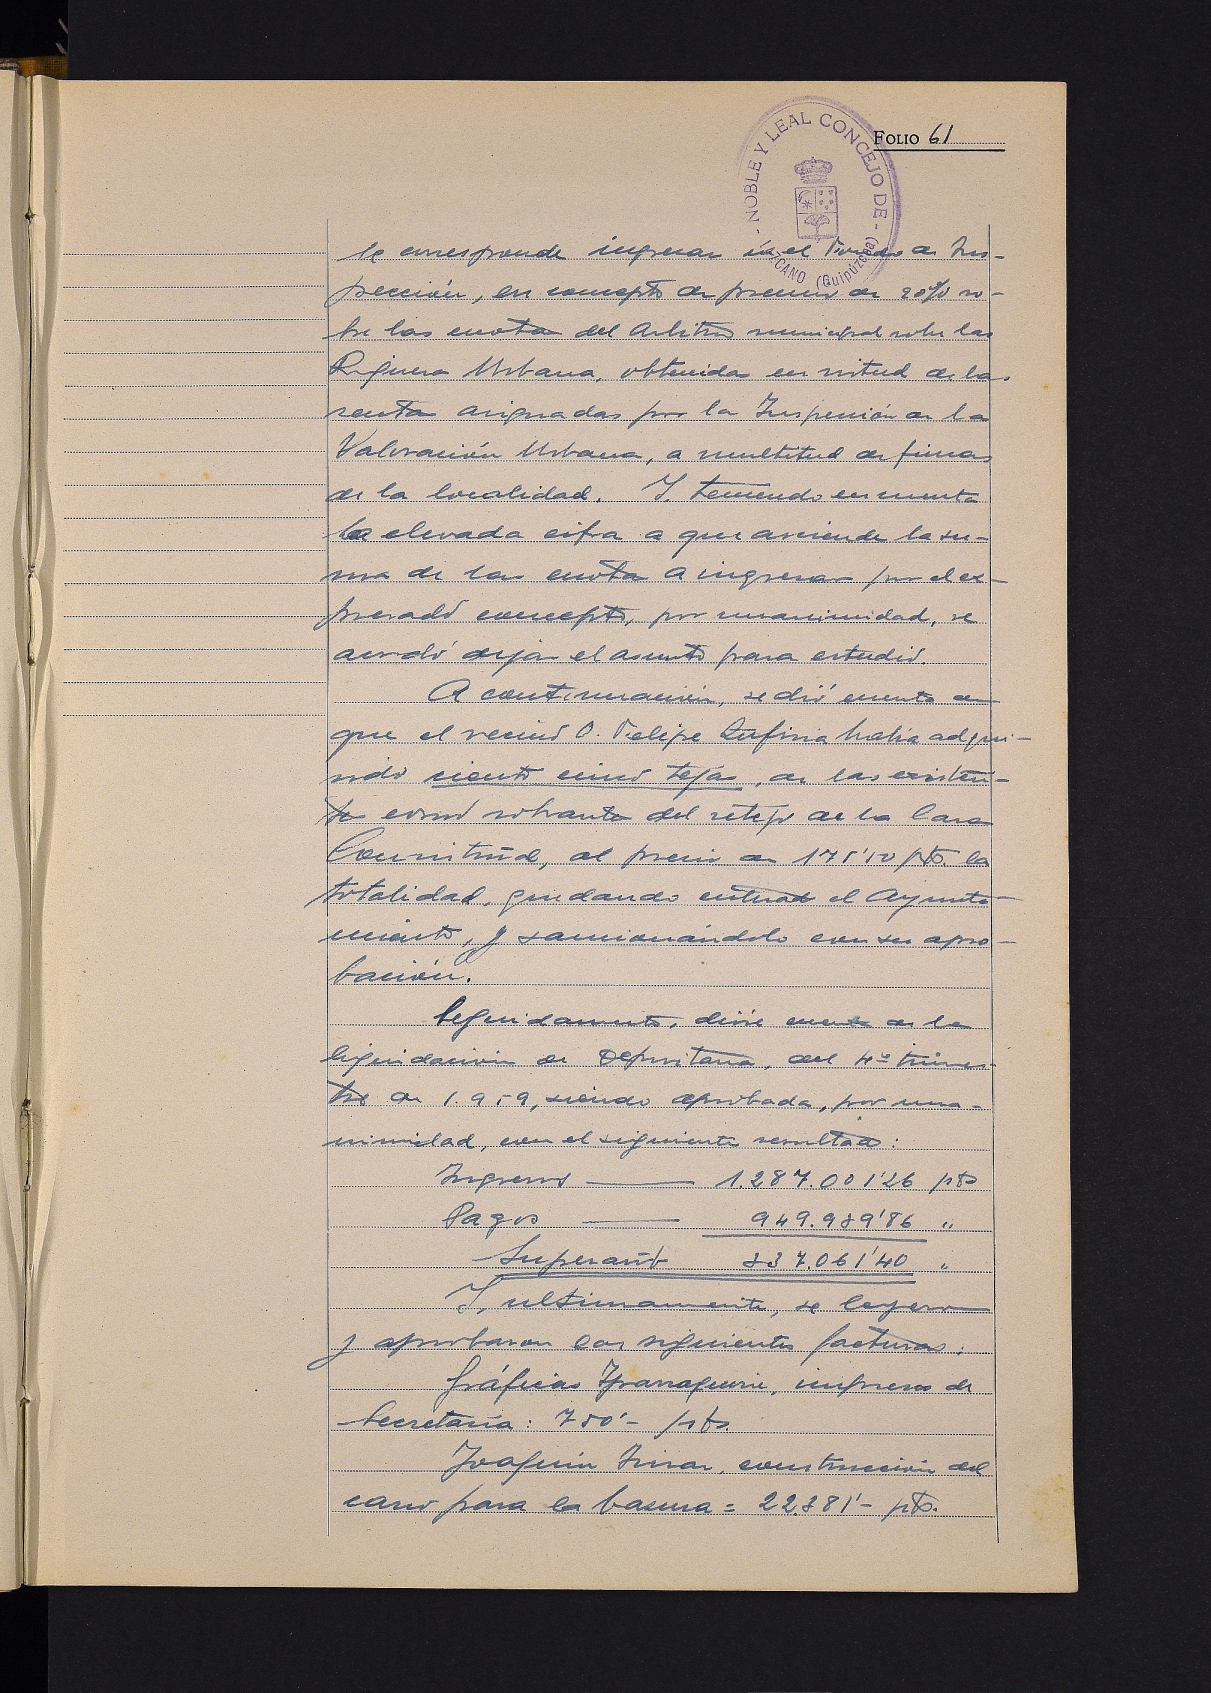 NOBLE Y LEAL CONCEJO DE
ZCANO (Guipúzcoa)
FOLIO 61
le corresponde ingresar en el Fondo de Ins-
pección, en concepto de premio de 20% so-
bre las cuotas del Arbitrio municipal sobre las
Riqueza Urbana, obtenidas en virtud de las
rentas asignadas por la Inspección de la
Valoración Urbana, a multitud de fincas
de la localidad. Y teniendo en cuenta
la elevada cifra a que asciende la su-
ma de las cuotas a ingresar por el ex-
presado concepto, por unanimidad, se
acordó dejar el asunto para estudio.
A continuación, se dió cuenta de
que el vecino D. Felipe había adqui-
rido ciento cinco tejas, de las existen-
tes como sobrantes del retejo de la Casa
Consistorial, al precio de pts. la
totalidad, quedando enterado el Ayunta-
miento, y sancionándolo con su apro-
bación.
Seguidamente, dióse cuenta de la
liquidación de Depositaria, del 4º trimes-
tre de 1.959, siendo aprobada, por una-
nimidad, con el siguiente resultado:
Ingresos 1.287.001'26 pts
Pagos 949.939'86 "
Superavit 337.061'40 "
Y, ultimamente, se leyeron
y aprobaron las siguientes facturas:
Gráficas Yparraguirre, impresos de
Secretaría: 750'- pts.
Joaquín construcción del
carro para la basura = 22.381'- pts.